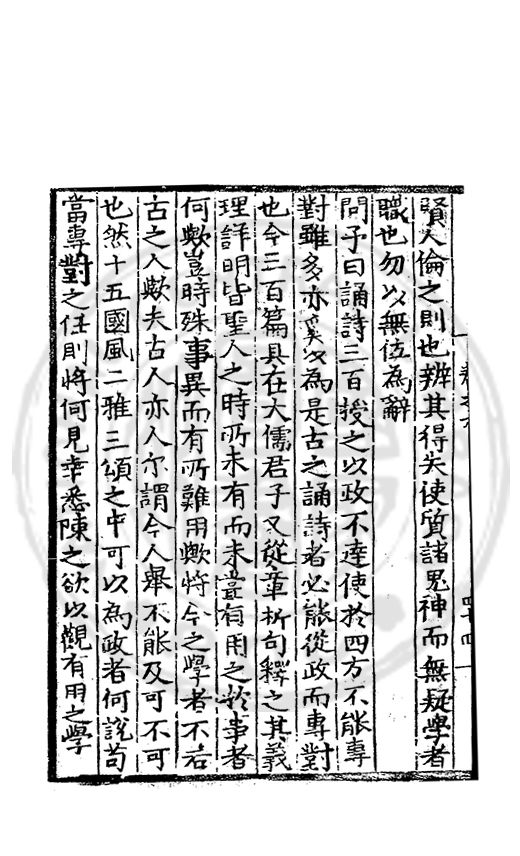 賢人倫之則也辨其得失使質諸鬼神而無疑學者
職也勿以無位為辭
問子曰誦詩三百授之以政不達使於四方不能專
對雖多亦奚以為是古之誦詩者必能從政而專對
也今三百篇具在大儒君子又從章析句釋之其義
理詳明皆聖人之時所未有而未嘗有用之於事者
何歟豈時殊事異而有所難用歟將今之學者不若
古之人歟夫古人亦人尔謂今人舉不能及可不可
也然十五國風二雅三頌之中可以為政者何說苟
當專對之任則將何見幸悉陳之欲以觀有用之學
四十四